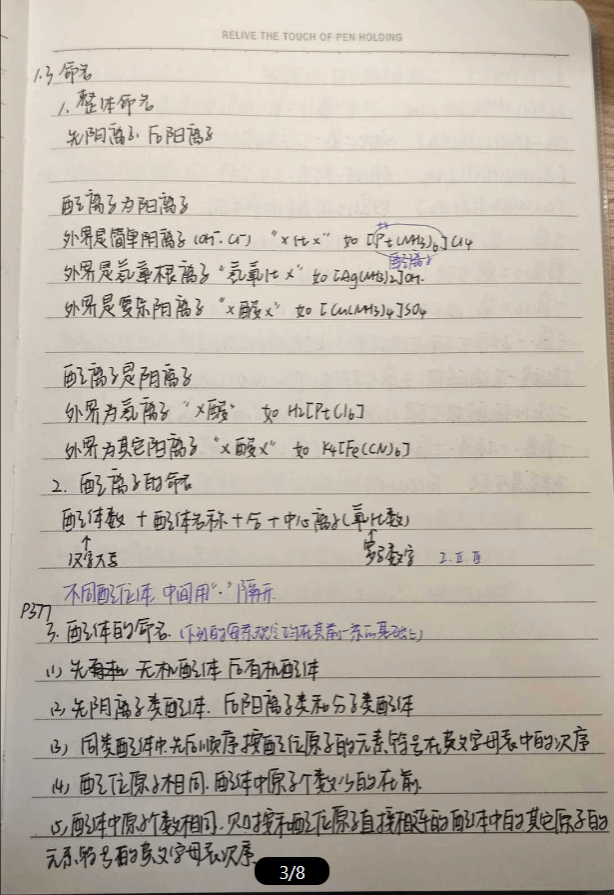 RELIVE THE TOUCH OF PEN HOLDING
1.3 命名
1. 整体命名
先阴离子.后阳离子
配离子为阳离子
外界是简单阴离子(OH⁻.Cl⁻) "×化×" 如 [Pt(NH3)6]Cl4
配离子
外界是氢氧根离子 "氢氧化×" 如 [Ag(NH3)2]OH.
外界是复杂阴离子 "×酸×" 如 [Cu(NH3)4]SO4
配离子是阴离子
外界为氢离子 "×酸" 如 H2[PtCl6]
外界为其它阳离子 "×酸×" 如 K4[Fe(CN)6]
2. 配离子的命名
配体数 + 配体名称 + 合 + 中心离子(氧化数)
↑ ↑
汉字大写 罗马数字 I.II.III
不同配位体 中间用"·"隔开
P377
3. 配体的命名.(下列的每条规定均在其前一条的基础上)
(1) 先无机配体 后有机配体
(2) 先阴离子类配体. 后阳离子类和分子类配体
(3) 同类配体中.先后顺序按配位原子的元素符号在英文字母表中的次序
(4) 配位原子相同.配体中原子个数少的在前
(5) 配体中原子个数相同.则按和配位原子直接相连的配体中的其它原子的
元素符号的英文字母表次序.
3/8